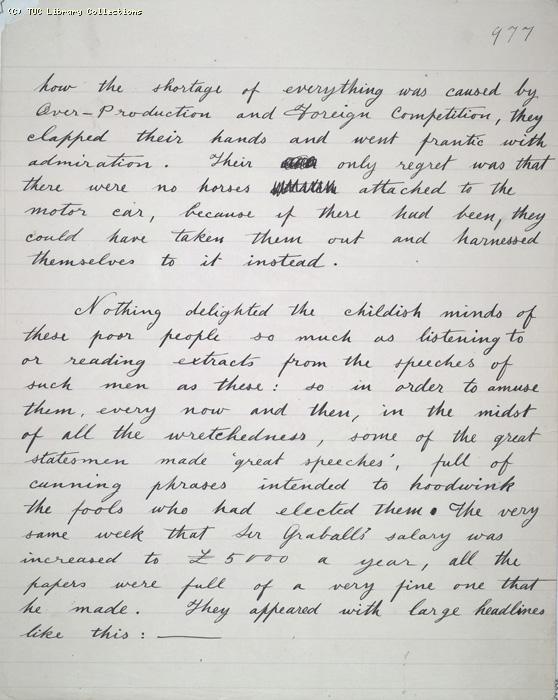 (C) TUC Library Collections
977
how the shortage of everything was caused by
Over-Production and Foreign Competition, they
clapped their hands and went frantic with
admiration. Their only regret was that
there were no horses attached to the
motor car, because if there had been, they
could have taken them out and harnessed
themselves to it instead.
Nothing delighted the childish minds of
these poor people so much as listening to
or reading extracts from the speeches of
such men as these: so in order to amuse
them, every now and then, in the midst
of all the wretchedness, some of the great
statesmen made 'great speeches', full of
cunning phrases intended to hoodwink
the fools who had elected them. The very
same week that Sir Graball's salary was
increased to £5000 a year, all the
papers were full of a very fine one that
he made. They appeared with large headlines
like this: ——